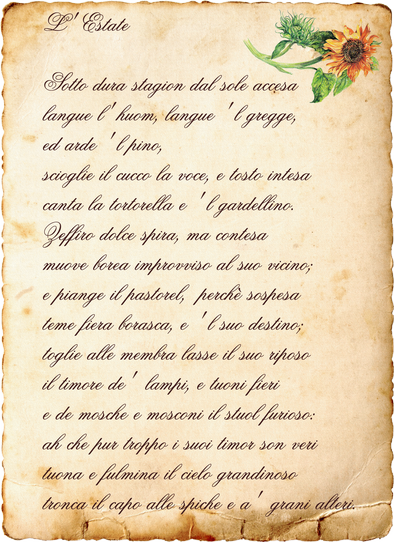 L' Estate
Sotto dura stagion dal sole accesa
langue l' huom, langue 'l gregge,
ed arde 'l pino,
scioglie il cucco la voce, e tosto intesa
canta la tortorella e 'l gardellino.
Zeffiro dolce spira, ma contesa
muove borea improvviso al suo vicino;
e piange il pastorel, perchè sospesa
teme fiera borasca, e 'l suo destino;
toglie alle membra lasse il suo riposo
il timore de' lampi, e tuoni fieri
e de mosche e mosconi il stuol furioso:
ah che pur troppo i suoi timor son veri
tuona e fulmina il cielo grandinoso
tronca il capo alle spiche e a' grani alteri.